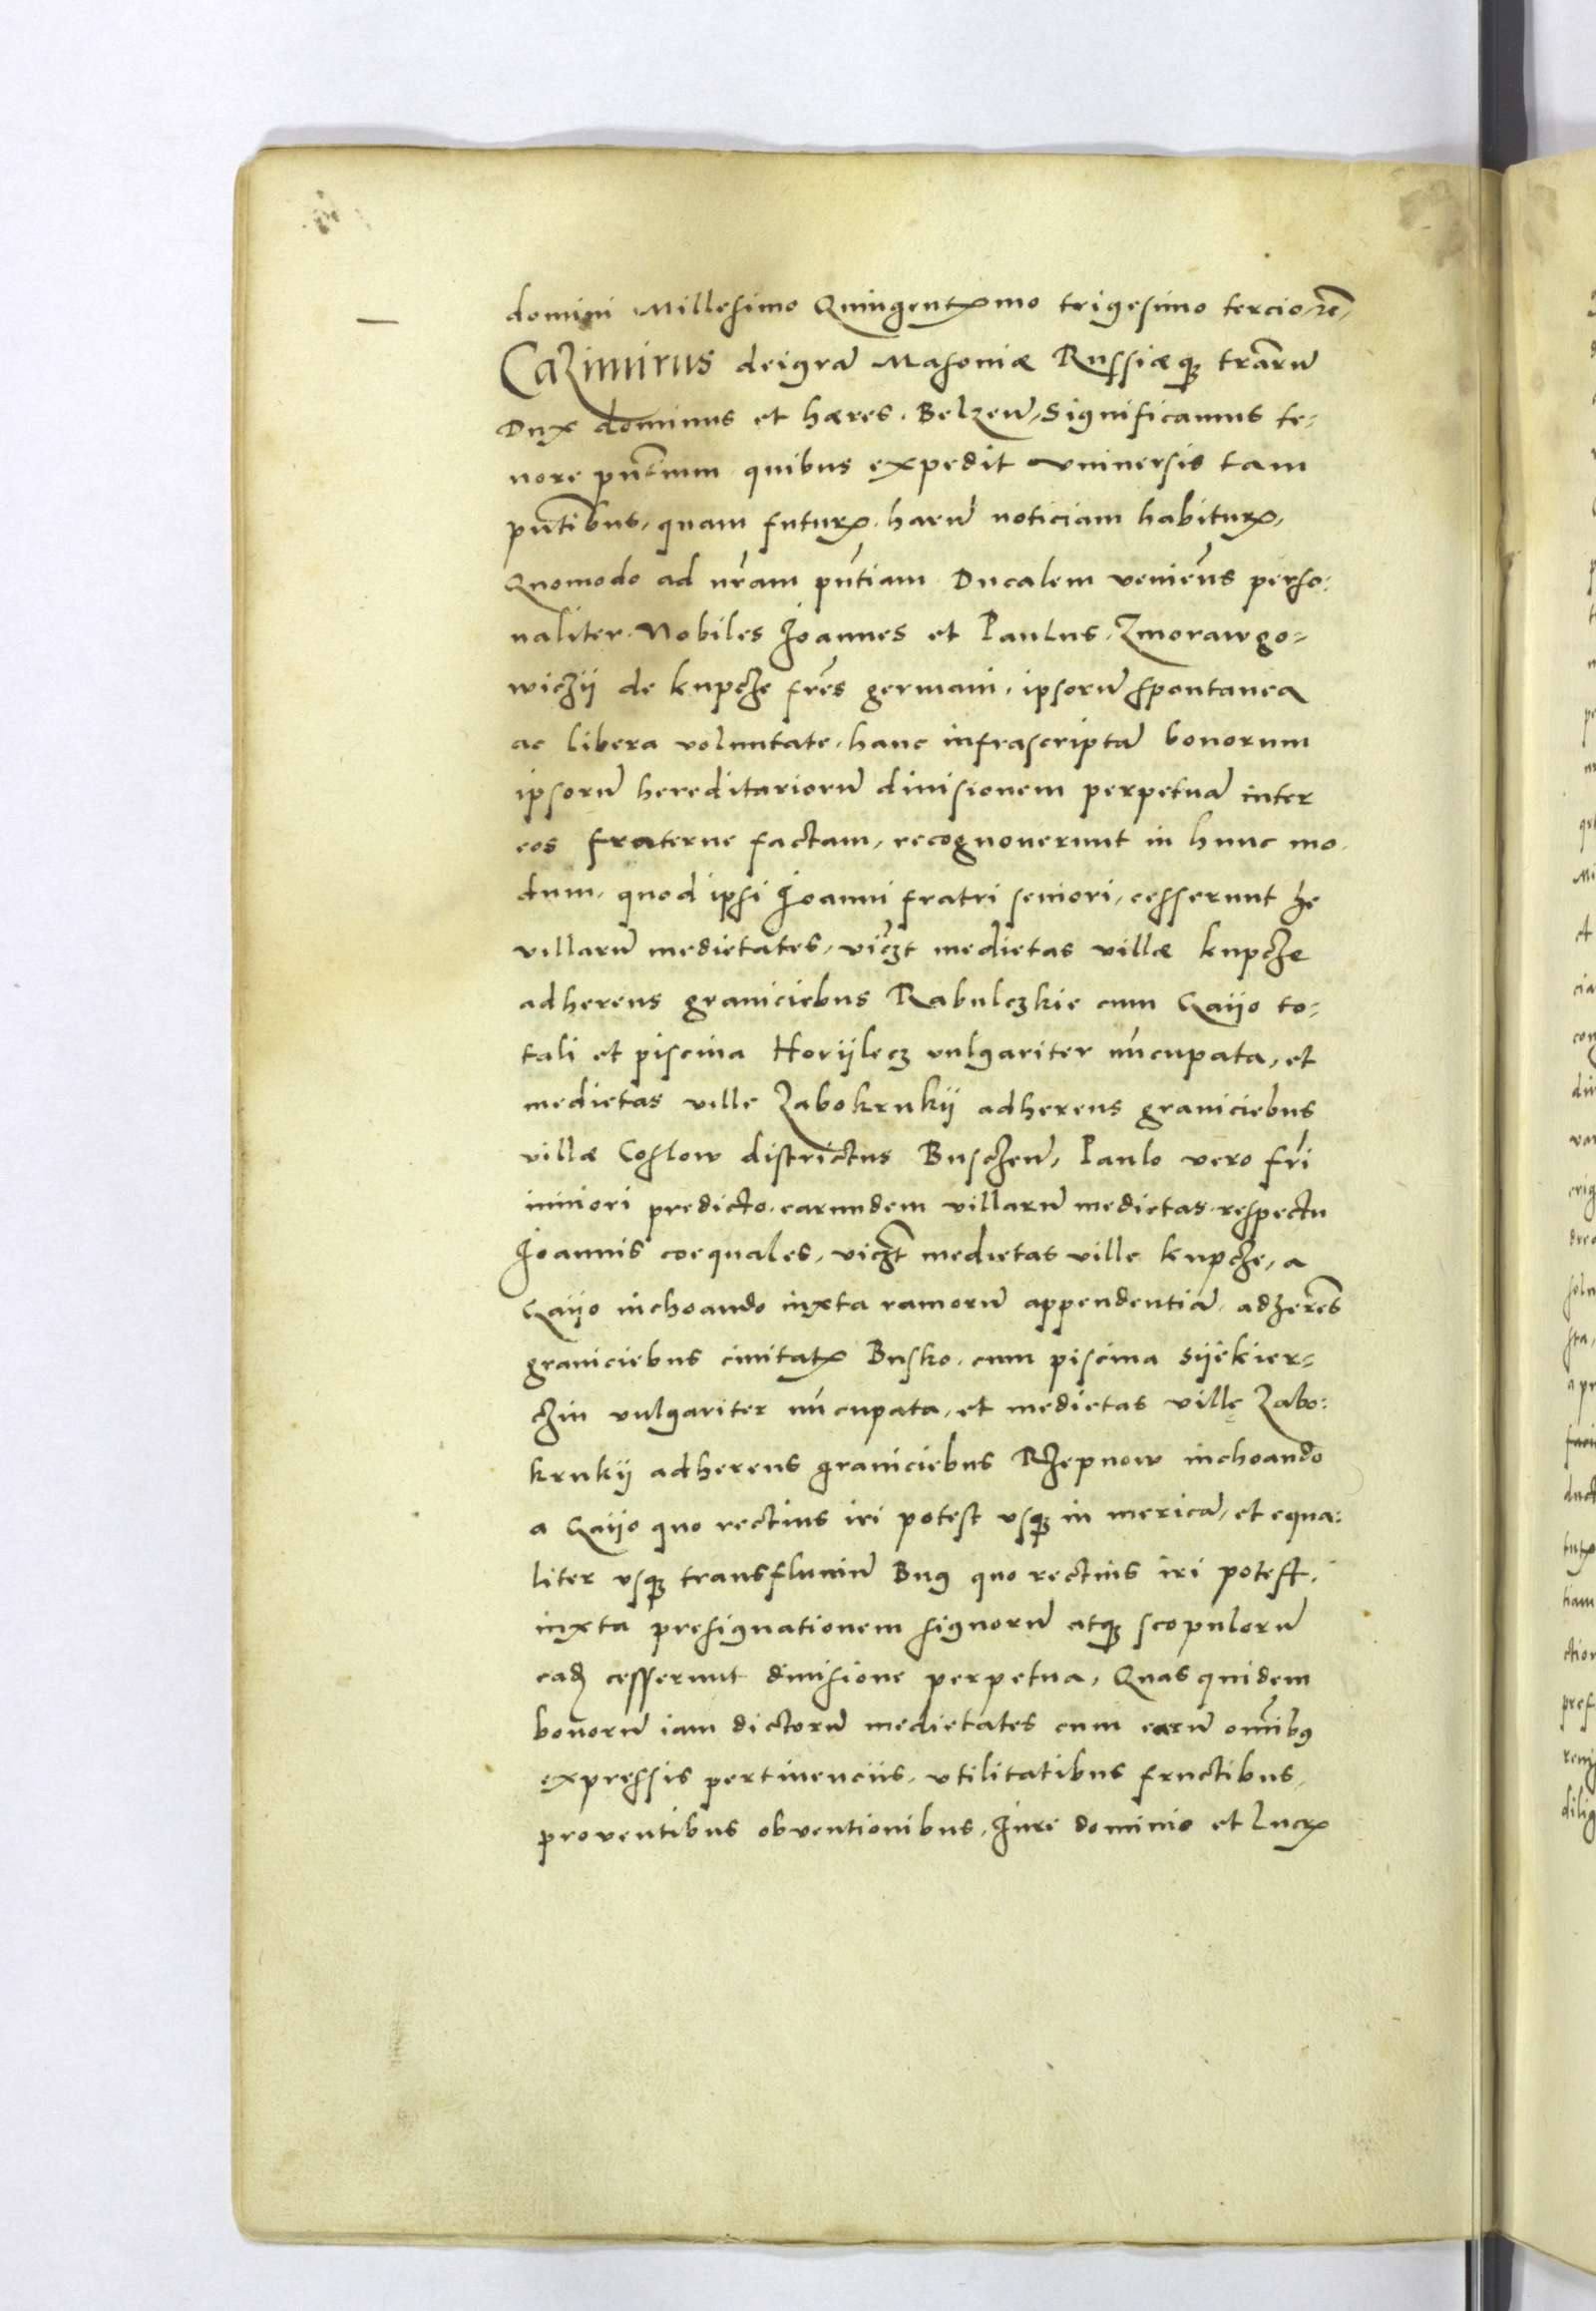 domini Millesimo Quingentꝫmo trigesimo tercio, rē,
Cazimirus deigrã Masoniæ Russiæqꝫ trãrũ
Dux dominus et hæres. Belzeñ, Significamus te-
nore pñtium quibus expedit vniuersis tam
pñtibus, quam futurꝫ. harũ noticiam habiturꝫ,
Quomodo ad nr̃am pñtiam Ducalem venieñs perso:
naliter. Nobiles Joannes et Paulus. Zmorawgo-
wiczÿ de kupcze fr̃es germani, ipsorũ spontanea
ac libera voluntate, hanc infrascriptã bonorum
ipsorũ hereditariorũ diuisionem perpetuã inter
eos fraterne factam, recognouerunt in hunc mo.
dum, quod ipsi Joanni fratri seniori, cesserunt he
villarũ medietates, vicꝫt medietas villæ kupcze
adherens graniciebus Rabulczkie cum Gaÿo to-
tali et piscina Horÿlecz vulgariter nũcupata, et
medietas ville Zabokrukÿ adherens graniciebus
villæ Coslow districtus Busczeñ, Paulo vero fr̃i
iuniori predicto. earundem villarũ medietas respectu
Joannis coequales, vicꝫt medietas ville kupcze, a
Gaÿo inchoando iuxta ramorũ appendentiã, adherẽs
graniciebus ciuitatꝫ Busko. cum piscina Sÿekier-
czin vulgariter nũcupata, et medietas villę Zabo:
krukÿ adherens graniciebus Rzepnow inchoando
a Gaÿo quo rectius iri potest vsqꝫ in mericã, et equa:
liter vsqꝫ transfluuiũ Bug quo rectius iri potest.
iuxta presignationem signorũ atqꝫ scopulorũ
eadꝫ cesserunt diuisione perpetua, Quas quidem
bonorũ iam dictorũ medietates cum earũ om̃ibꝰ
expressis pertinenciis, vtilitatibus fructibus,
prouentibus obuentionibus, Jure dominio et lucrꝫ